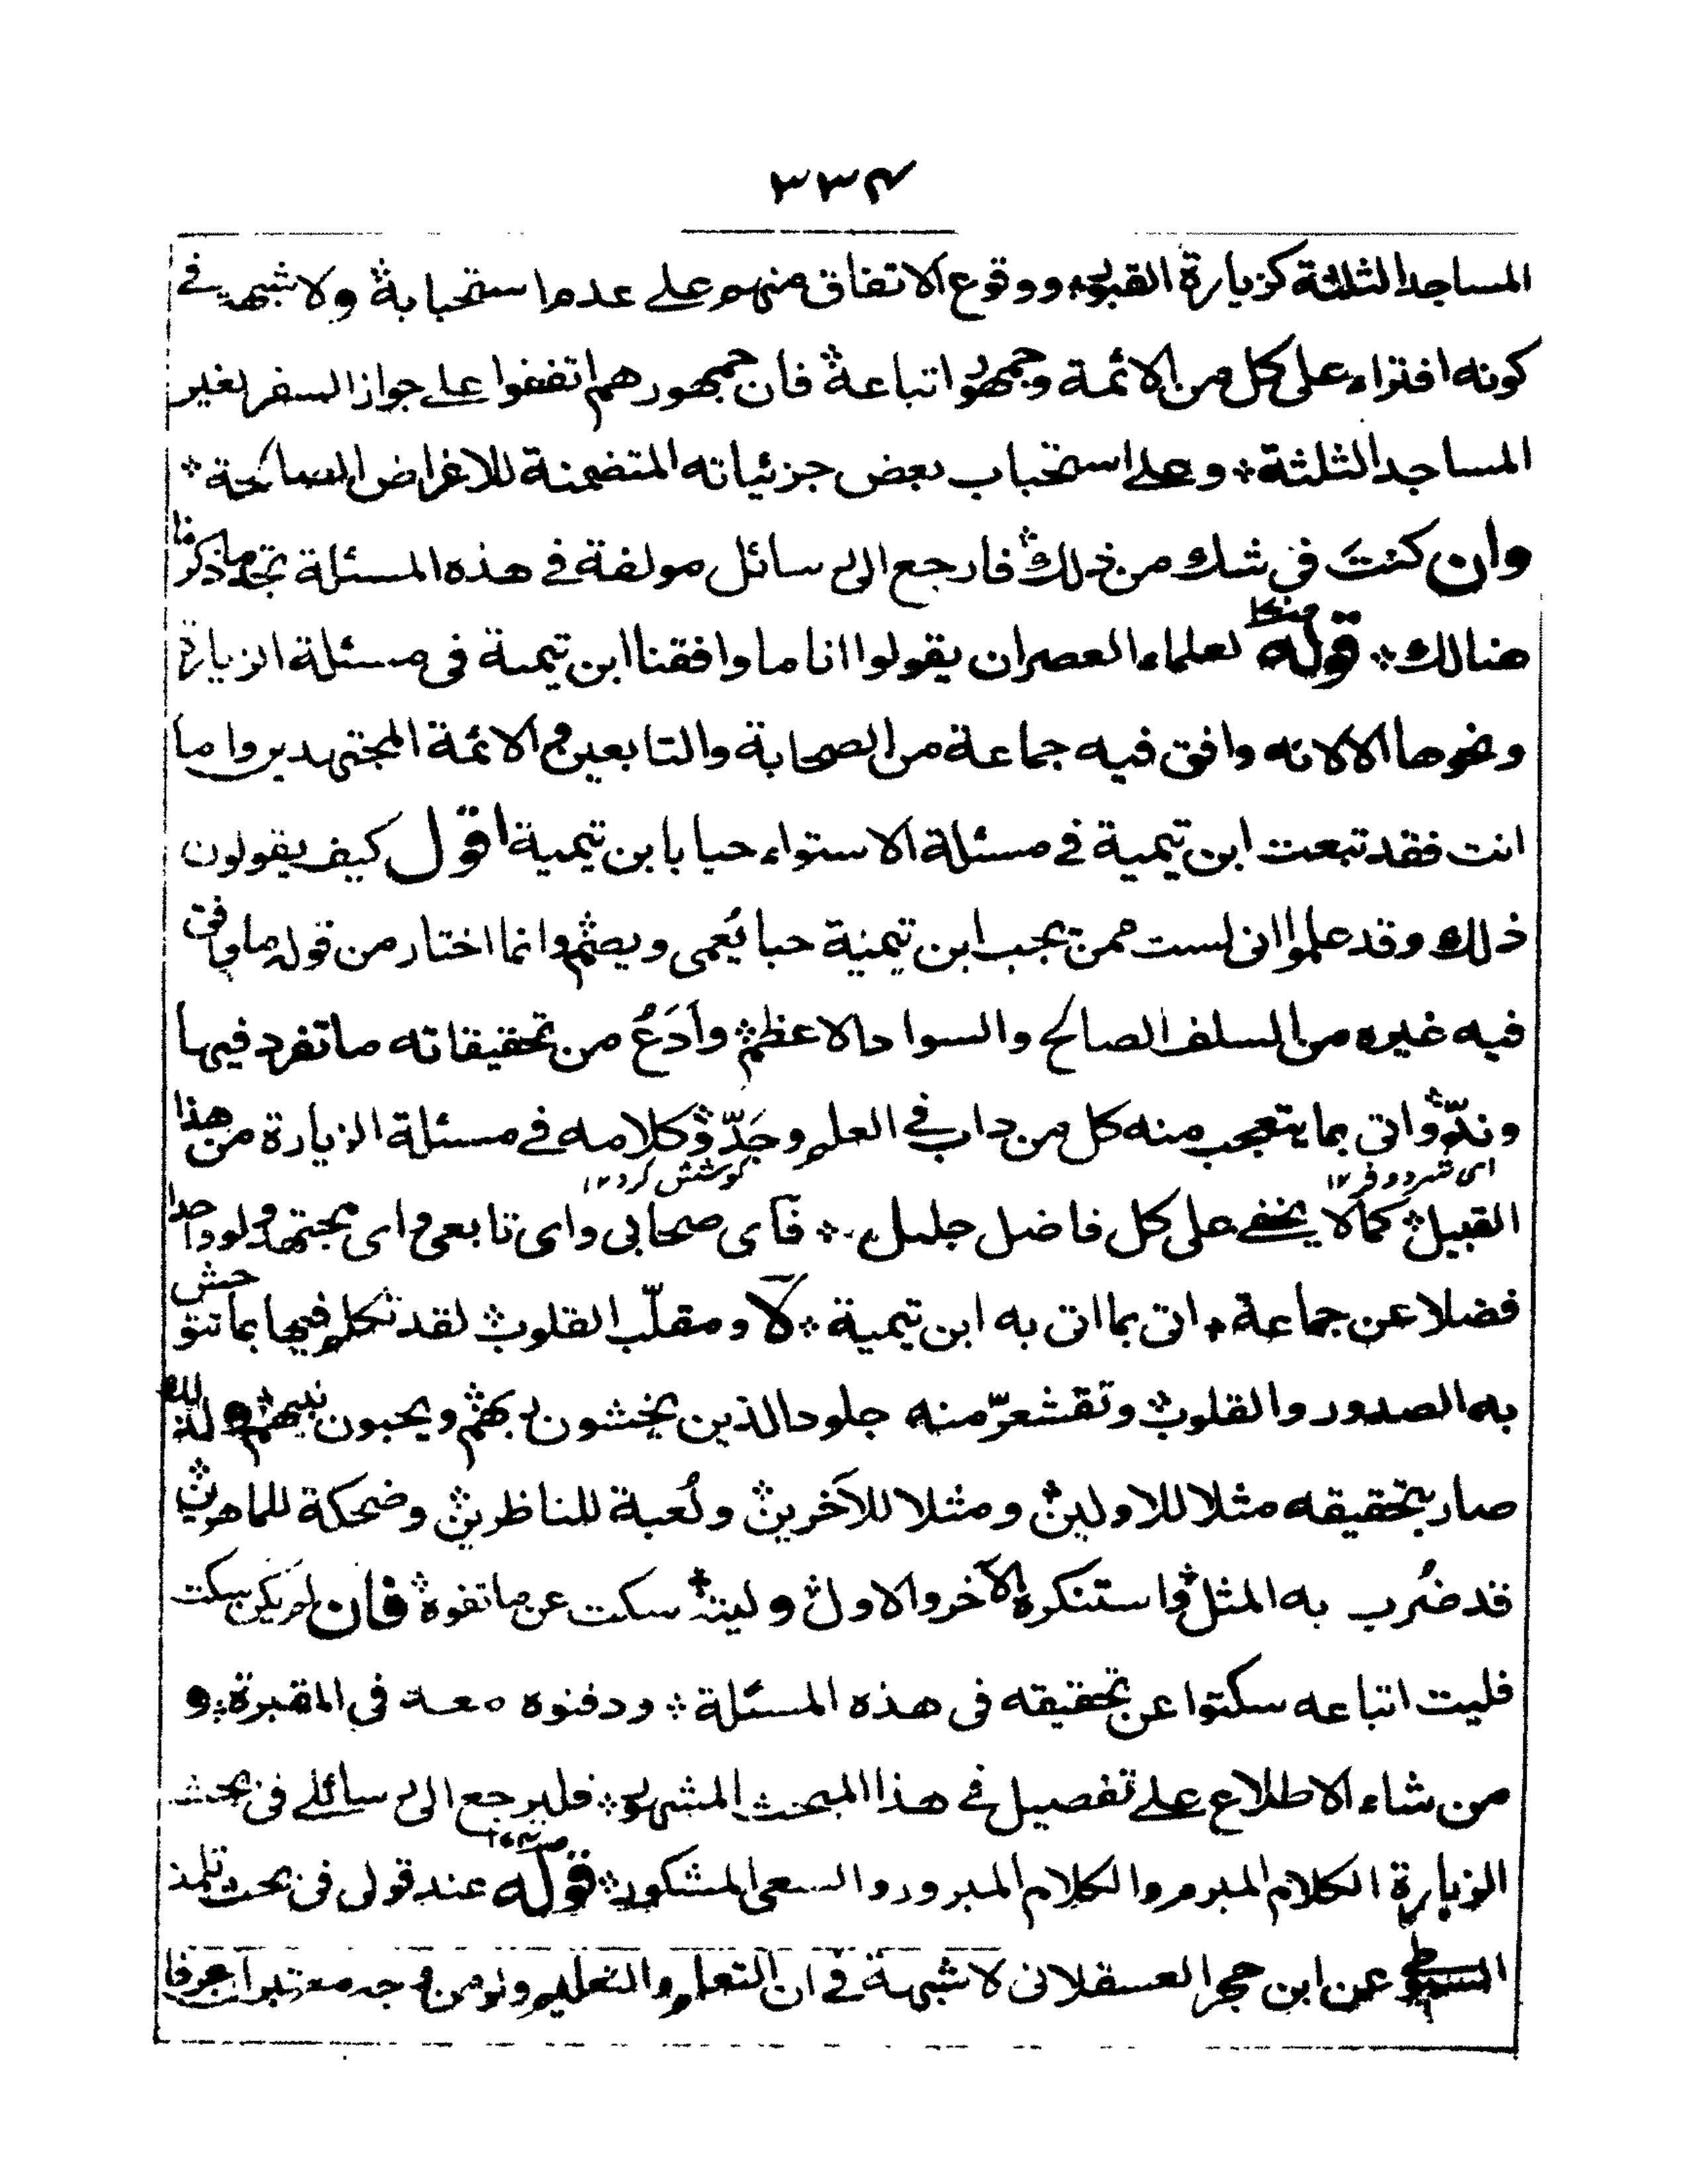 ٣٣٤
المساجد الثلثة كزيارة القبور ووقوع الاتفاق منهم على عدم استحبابه ولا شبهة في
كونه افتراء على كل من الائمة وجمهور اتباعه فان جمهورهم اتفقوا على جواز السفر لغير
المساجد الثلثة وعلى استحباب بعض جزئياته المتضمنة للاغراض الصالحة
وان كنت في شك من ذلك فارجع الى رسائل مولفة في هذه المسئلة تجد ما ذكرنا
هنالك قوله لعلماء العصر ان يقولوا انا ما وافقنا ابن تيمية في مسئلة الزيارة
ونحوها الا لانه وافق فيه جماعة من الصحابة والتابعين والائمة المجتهدين واما
انت فقد تبعت ابن تيمية في مسئلة الاستواء حبا بابن تيمية اقول كيف يقولون
ذلك وقد علموا انى لست ممن يحب ابن تيمية حبا يُعمى ويصم وانما اختار من قوله ما وافق
فيه غيره من السلف الصالح والسواد الاعظم وأدَعُ من تحقيقاته ما تفرد فيها
وندّ واتى بما يتعجب منه كل من داب في العلم وجَدّ وكلامه في مسئلة الزيارة من هذا
كوشش كرد ١٢
القبيل كما لا يخفى على كل فاضل جليل فأى صحابى واى تابعى واى مجتهد ولو واحدا
فضلا عن جماعة اتى بما اتى به ابن تيمية لا ومقلّب القلوب لقد تكلم فيها بما تتوحش
به الصدور والقلوب وتقشعرّ منه جلود الذين يخشون ربهم ويحبون نبيهم ولله
صار بتحقيقه مثلا للاولين ومثلا للآخرين ولُعبة للناظرين وضحكة للماهرين
قد ضُرب به المثل واستنكره الآخر والاول وليته سكت عن ما تفوه فان لم يكن سكت
فليت اتباعه سكتوا عن تحقيقه فى هذه المسئلة ودفنوه معه في المقبرة و
من شاء الاطلاع على تفصيل في هذا المبحث المشهور فليرجع الى رسائلى فى بحث
الزيارة الكلام المبرم والكلام المبرور والسعى المشكور قوله عند قولى فى بحث تلمذ
السيوطى عن ابن حجر العسقلانى لا شبهة فى ان التعلم والتعليم ولو من وجه معتبر عرفا